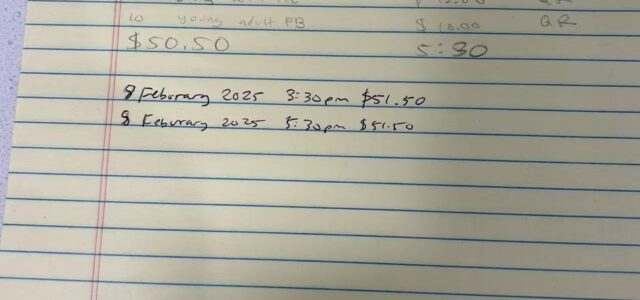 $ 12.00 QR
10 young adult PB $ 10.00 QR
$50.50 5:30
8 Feburary 2025 3:30pm $51.50
8 Feburary 2025 5:30pm $51.50